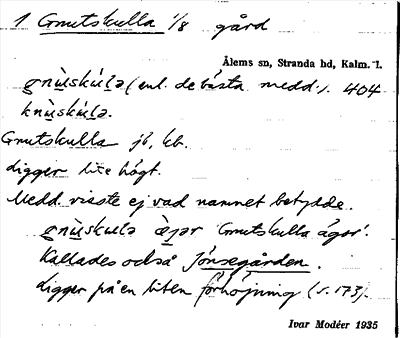 1 Gnutskulla 1/8 gård
Ålems sn, Stranda hd, Kalm. l.
gnùskúlə (enl. de bästa medd:). 404
knùskúlə.
Gnutskulla jb, kb.
Ligger lite högt.
Medd. visste ej vad namnet betydde.
gnùskulə Gnutskulla ägor.
Kallades också Jönsegården.
Ligger på en liten förhöjning (s. 173).
Ivar Modéer 1935